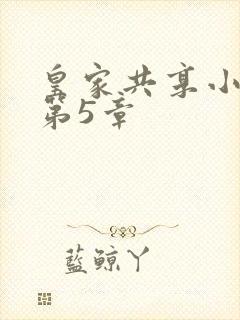 皇家共享小
第5章
藍鲸丫